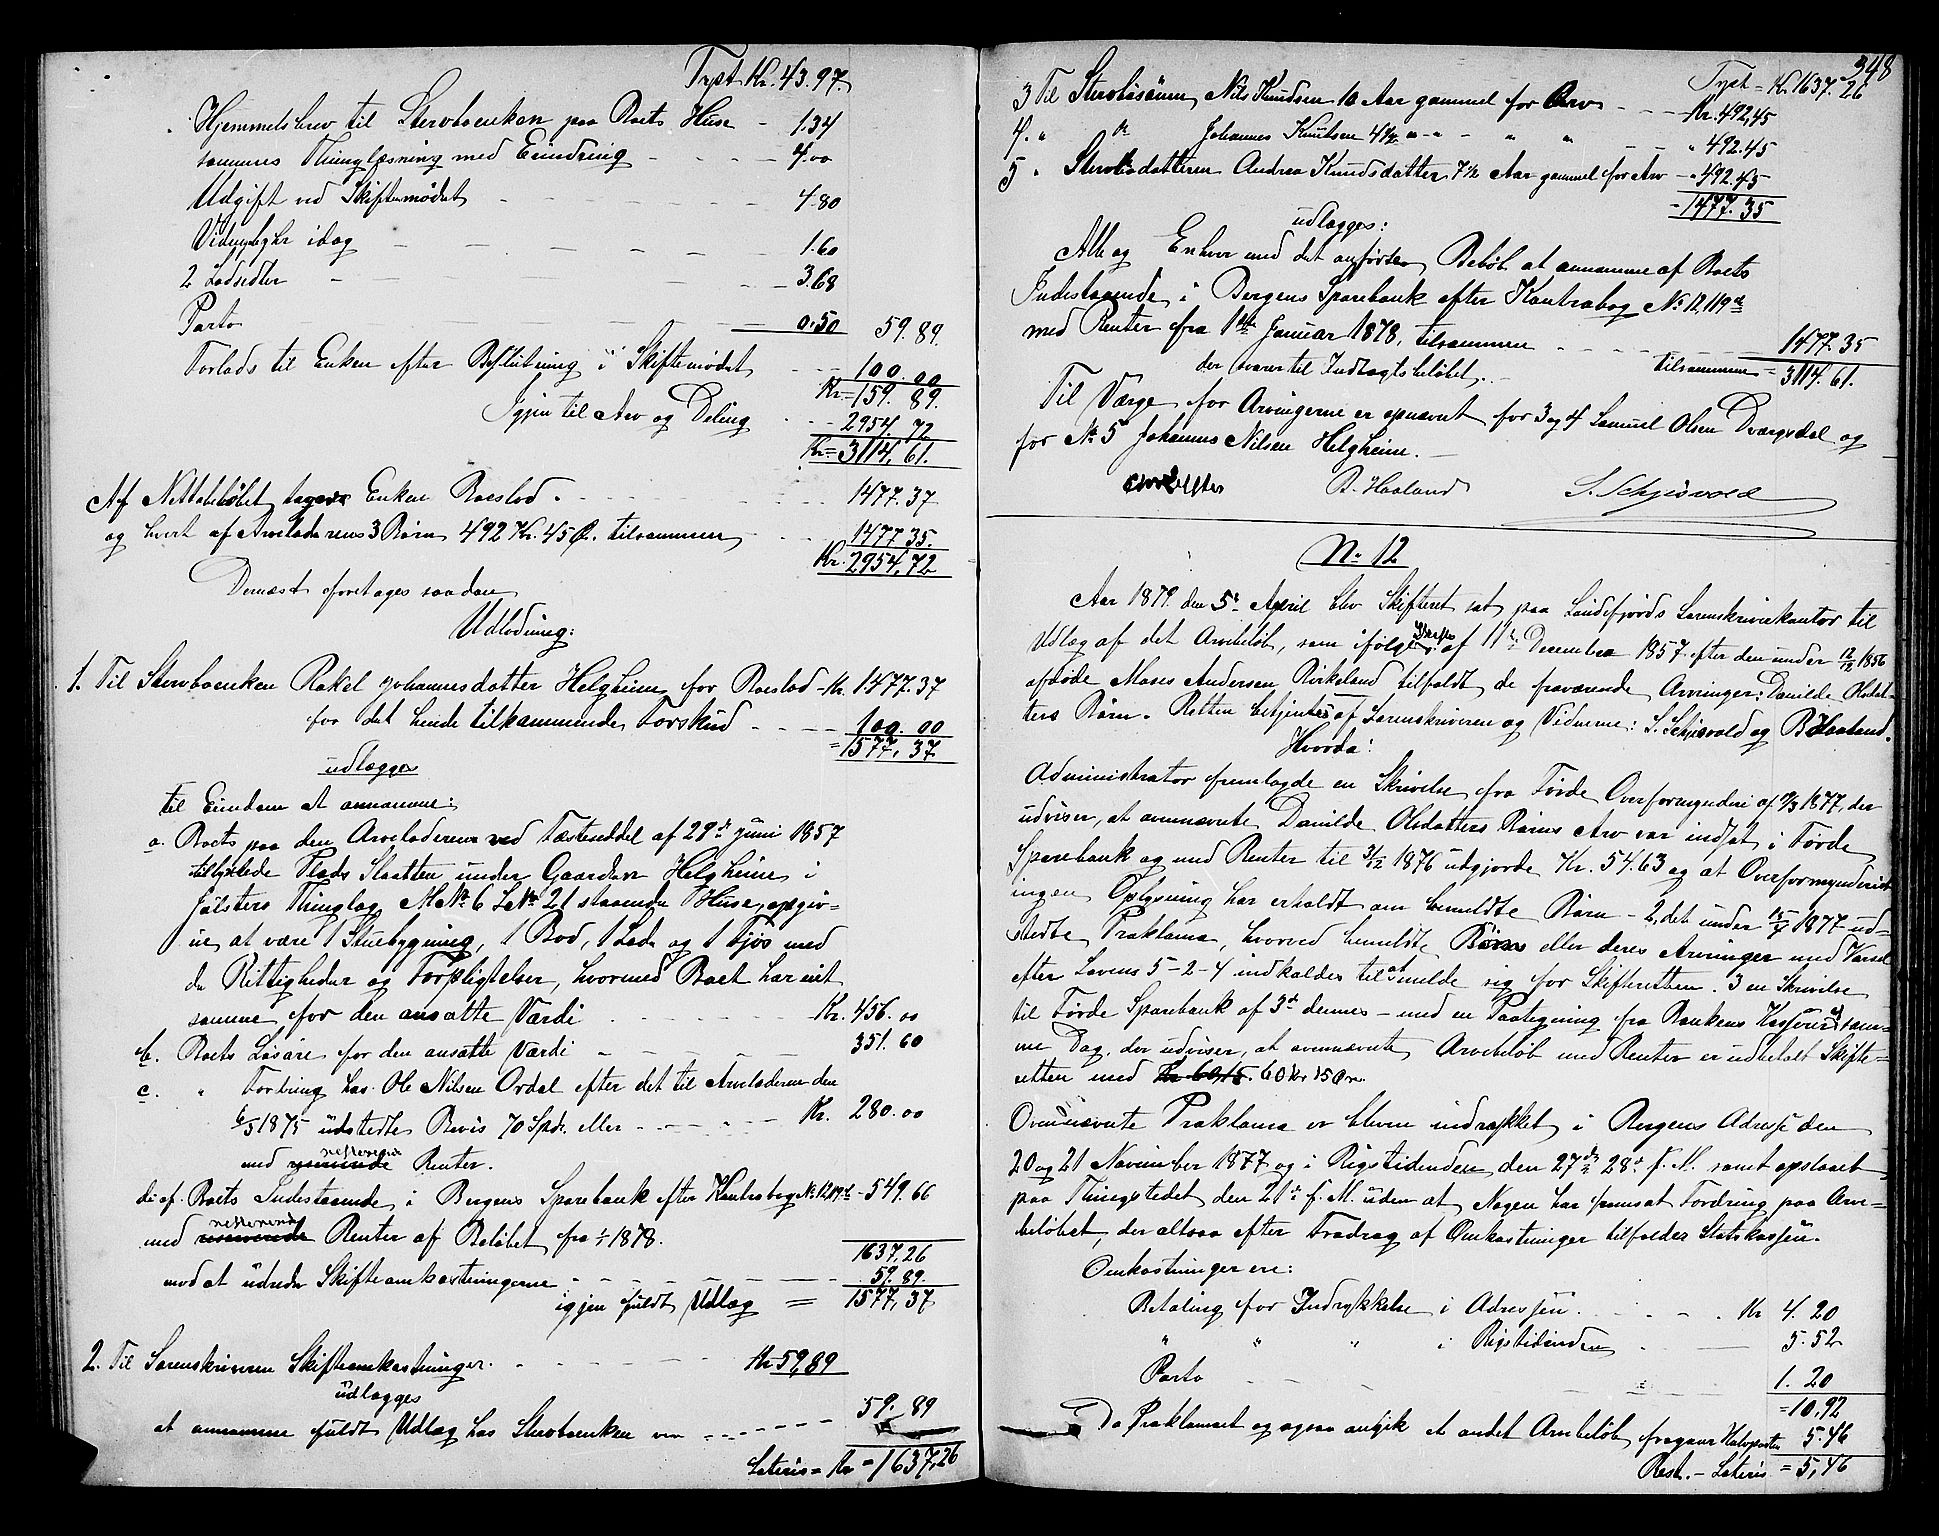 Trspt. Kr. 43.97.
Hjemmelsbrev til Stervboenken paa Boets Huse - 1.34
sammes Thinglæsning med Erindring - - - - 4.00
Udgift ved Skiftemødet - - - - - 4.80
Vidnegebyhr idag - - - - - 1.60
2 Lodsedler - - - - - 3.68
Porto - - - - - 0.50 59.89.
Forlods til Enken efter Beslutning i Skiftemødet - - - 100.00
Kr = 159.89.
Igjen til Arv og Deling - - - 2954.72
Kr = 3114.61.
Af Nettobeløbet tager Enken Boeslod - - - - 1477.37
og hvert af Arveladerens 3 Børn 492 Kr. 45 Ø. tilsammen - - 1477.35.
Kr. 2954.72
Dernæst foretages saadan
Udlodning:
1. Til Stervboenken Rakel Johannesdatter Helgheim for Boeslod - Kr. 1477.37
for det hende tilkommende Forskud - - - - 100.00
= 1577.37
udlægges
til Eiendom at annamme:
a. Boets paa den Arveladeren ved Fæsteseddel af 29de Juni 1857
tilbyxlede Plads Slaatten under Gaarden Helgheim i
Jølsters Thinglag M.No 6 L.No 21 staaende Huse, opgiv-
ne at være 1 Stuebygning, 1 Bod, 1 Lade og 1 Fjøs med
de Rettigheder og Forpligtelser, hvormed Boet har eiet
samme for den ansatte Værdi - - - - Kr. 456.00
b. Boets Løsøre for den ansatte Værdi - - - - 351.60
c. " Fordring hos Ole Nilsen Ordal efter det til Arveladeren den
6/5 1875 udstedte Bevis 70 Spdr. eller - - - - Kr. 280.00
med resterende Renter.
d. af Boets Indestaaende i Bergens Sparebank efter Kontrabog No 12,119 - 549.66
med resterende Renter af Beløbet fra 1/1 1878.
1637.26
mod at udrede Skifteomkostningerne - - - - 59.89.
igjen fuldt Udlæg = 1577.37
2. Til Sorenskriveren Skifteomkostninger - - - - Kr 59.89
udlægges
at annamme fuldt Udlæg hos Stervboenken - - - - 59.89
Lateris = Kr = 1637.26
348
Trspt = Kr. 1637.26
3 Til Stervbosønnen Nils Knudsen 10 Aar gammel for Arv - - - Kr. 492.45
4. " Do Johannes Knudsen 4½ " - " - " " - - " 492.45
5 " Stervbodatteren Andrea Knudsdatter 7½ Aar gammel for Arv - " 492.45
- 1477.35
udlægges:
Alle og Enhver med det anførte Beløb at annamme af Boets
Indestaaende i Bergens Sparebank efter Kontrabog No 12,119
med Renter fra 1ste Januar 1878, tilsammen - - - - 1477.35
der svarer til Indtægtsbeløbet. - tilsammen = 3114.61.
Til Værge for Arvingerne er opnævnt for 3 og 4 Samuel Olsen Dvergsdal og
for No 5 Johannes Nilsen Helgheim. -
B. Haaland S. Schjisvold
No 12
Aar 1879 den 5te April blev Skifteret sat paa Søndfjords Sorenskriverkontor til
Udlæg af det Arvebeløb, som ifølge Skifte af 11te December 1857 efter den under 12/12 1856
afdøde Moses Andersen Birkeland tilfaldt de fraværende Arvinger: Danilde Olsdat-
ters Børn. Retten betjentes af Sorenskriveren og Vidnerne: S. Schjisvold og B Haaland.
Hvorda:
Administrator fremlagde en Skrivelse fra Førde Overformynderi af 1877, der
udviser, at ovennævnte Danilde Olsdatters Børns Arv var indsat i Førde
Sparebank og med Renter til 31/12 1876 udgjorde Kr. 54.63 og at Overformynderiet
ingen Oplysning har erholdt om bemeldte Børn - 2, det under 1877 ud-
stedte Proklama, hvorved bemeldte Børn eller deres Arvinger med Varsel
efter Lovens 5-2-4 indkaldes til at melde sig for Skifteretten. 3 en Skrivelse
til Førde Sparebank af 3de dennes - med en Paategning fra Bankens Kasserer af sam-
me Dag, der udviser, at ovennævnte Arvebeløb med Renter er udbetalt Skifte-
retten med Kr 60,15. 60 Kr 15 Øre.
Ovennævnte Proklama er bleven indrykket i Bergens Adresse den
20 og 21 November 1877 og i Rigstidenden den 27de 28de f. M. samt opslaaet
paa Thingstedet den 21de f. M. uden at Nogen har fremsat Fordring paa Arve-
beløbet, der altsaa efter Fradrag af Omkostninger tilfalder Statskassen.
Omkostninger ere:
Betaling for Indrykkelse i Adressen - - - Kr 4.20
" " " i Rigstidenden - - 5.52
Porto - - - - 1.20
= 10,92
Da Proklamaet og ogsaa angik et andet Arvebeløb fragaar Halvparten 5.46
Rest. - Lateris = 5,46